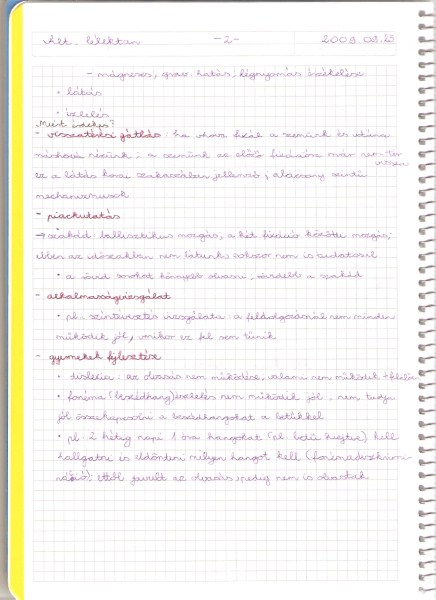 Ált. lélektan -2- 2009.09.23
- mágneses, grav. hatás, légnyomás érzékelése
• látás
• ízlelés
Miért érdekes?
- visszatérési gátlás: ha ahova fixál a szemünk és utána
máshova nézünk; a szemünk az előző fixációra már nem tér
vissza
ez a látás korai szakaszában jellemző, alacsony szintű
mechanizmusok
- piackutatás
→ szakkád: ballisztikus mozgás, a két fixáció közötti mozgás;
ebben az időszakban nem látunk sokszor nem is tudatosul
• a rövid sorokat könnyebb olvasni, rövidebb a szakkád
- alkalmasságvizsgálat
• pl: színtévesztés vizsgálata: a feldolgozásnál nem minden
működik jól, amikor ez fel sem tűnik
- gyerekek fejlesztése
• diszlexia: az olvasás nem működése, valami nem működik
• fonéma (beszédhang) észlelés nem működik jól. nem tudja
jól összekapcsolni a beszédhangokat a betűkkel
• pl: 2 hétig napi 1 óra hangokat (pl. betű kiejtve) kell
hallgatni és eldönteni milyen hangot kell (fonémadiszkrimi-
náció), ettől javult az olvasás, pedig nem is olvastak